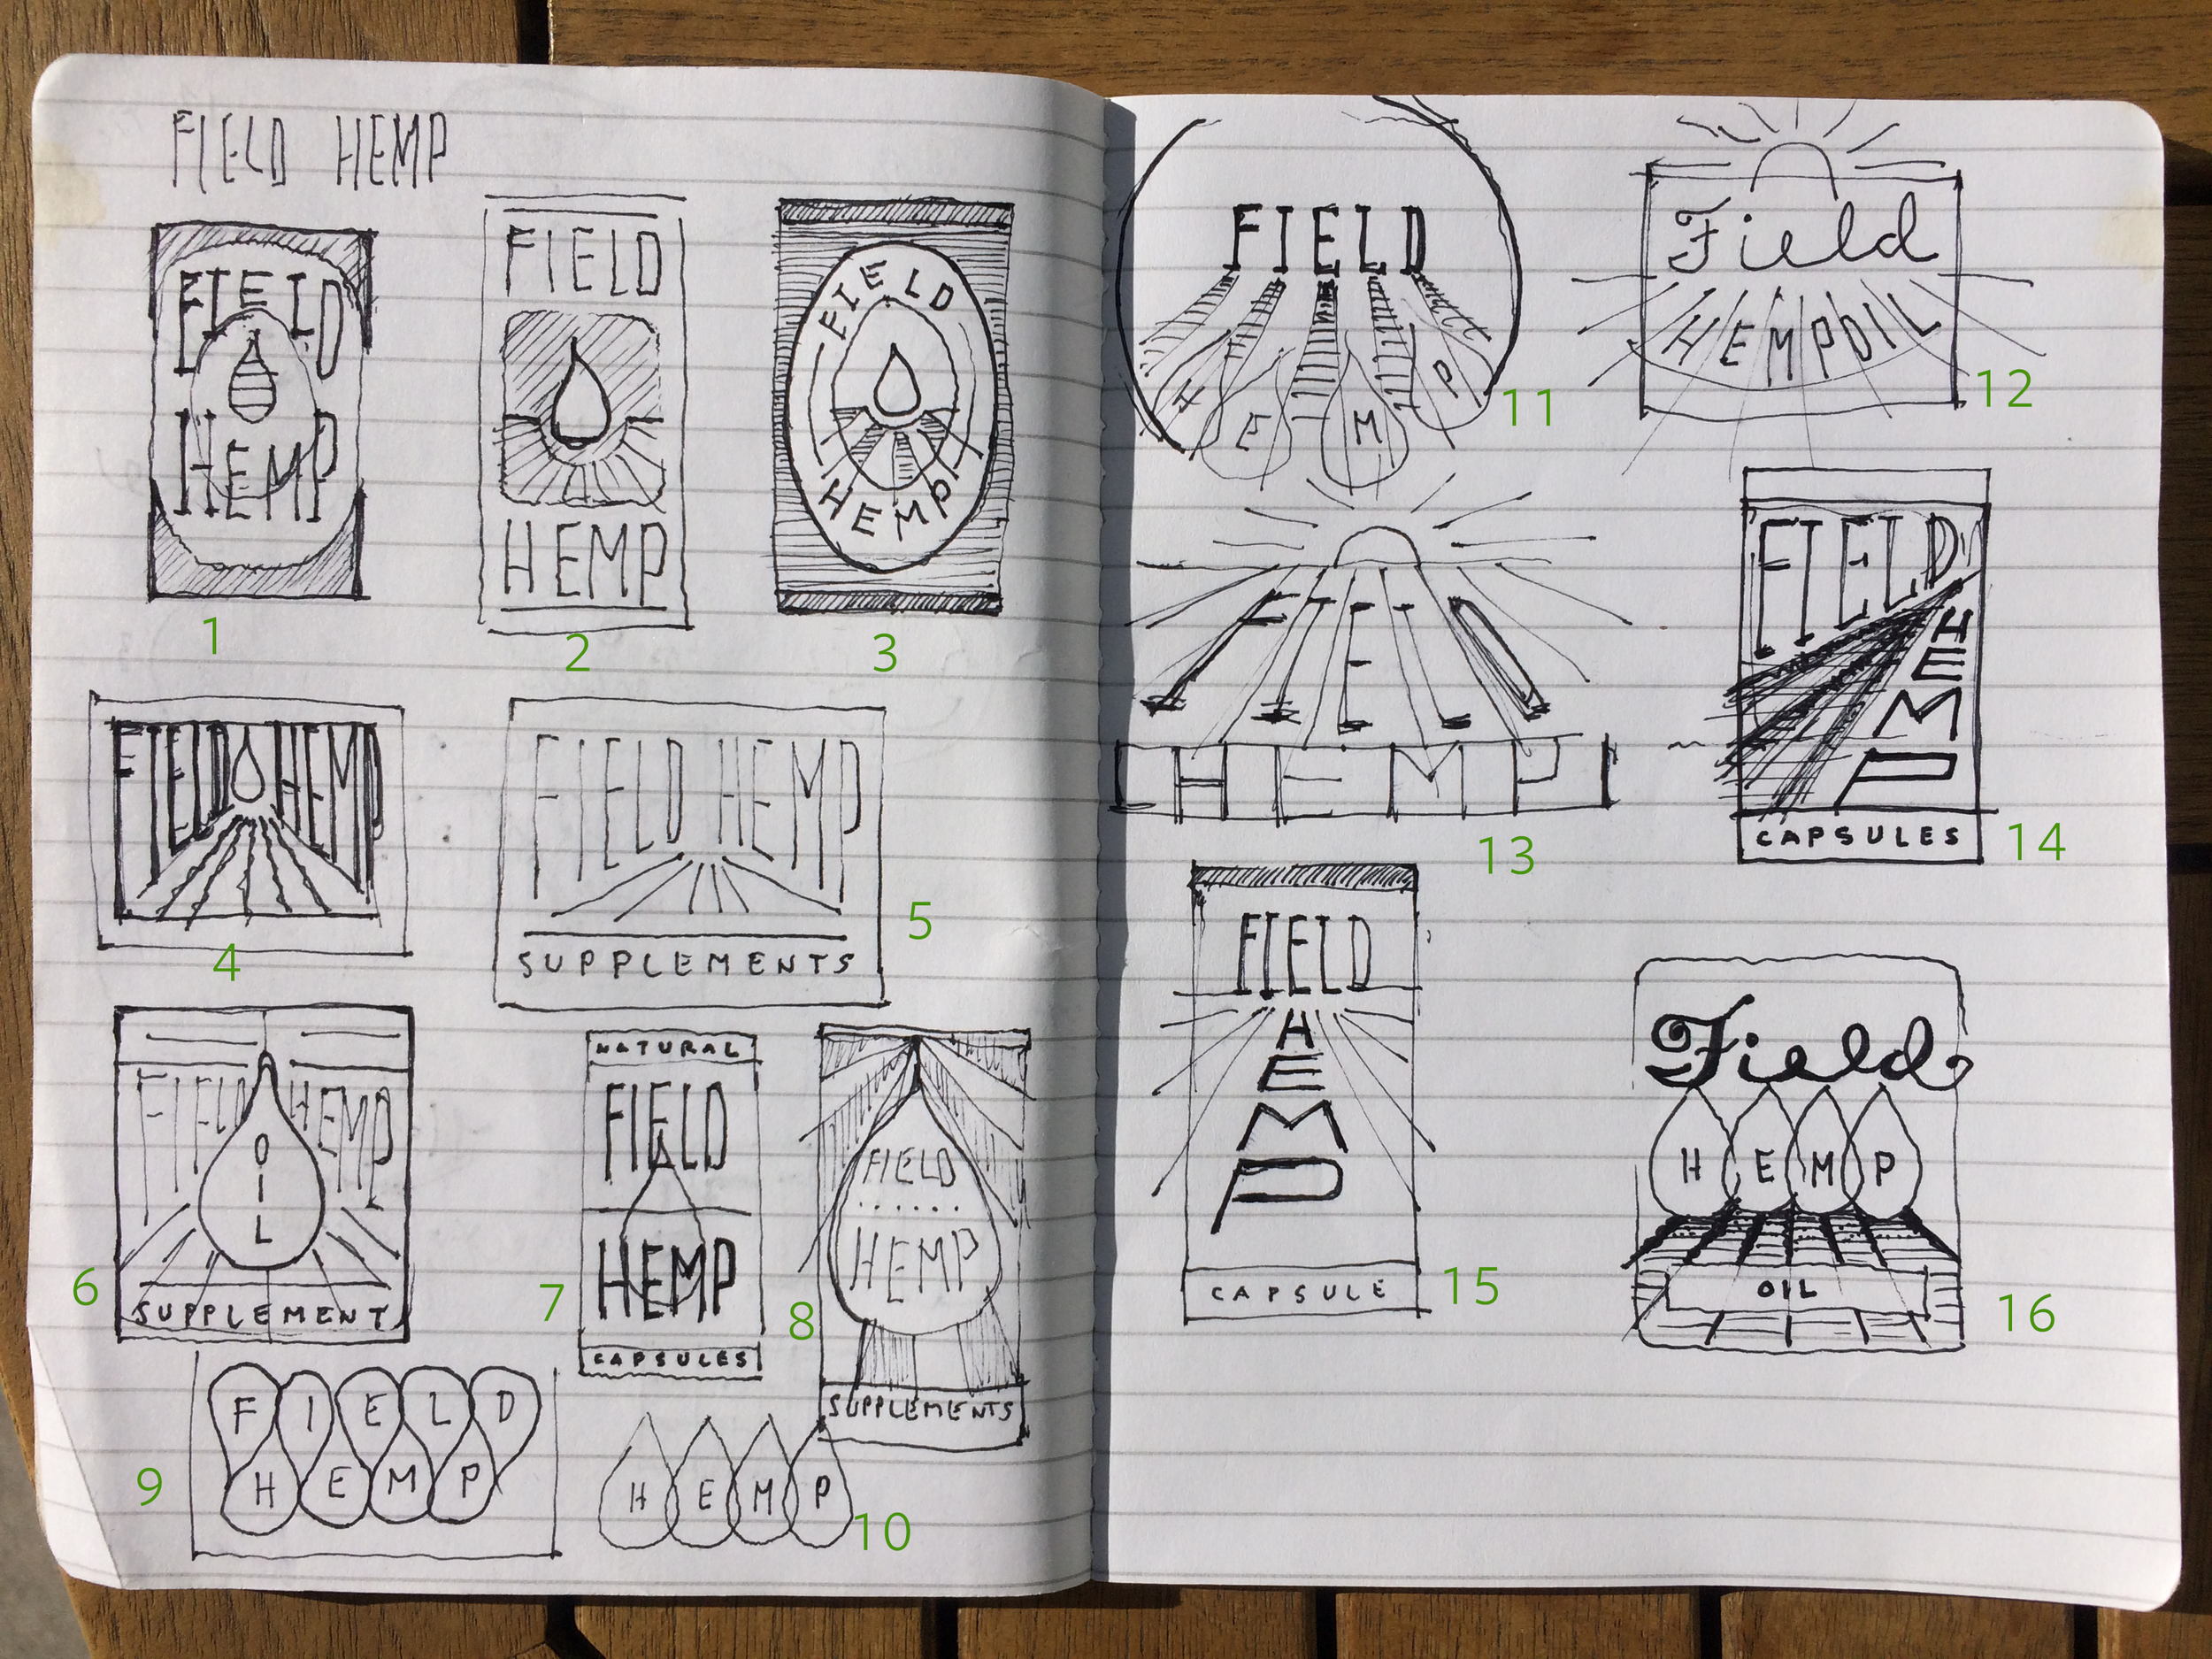 FIELD HEMP
FIELD
HEMP
1
FIELD
HEMP
2
FIELD
HEMP
3
FIELD HEMP
4
FIELD HEMP
SUPPLEMENTS
5
FIELD HEMP
OIL
SUPPLEMENT
6
NATURAL
FIELD
HEMP
CAPSULES
7
FIELD
HEMP
SUPPLEMENTS
8
FIELD
HEMP
9
HEMP
10
FIELD
HEMP
11
Field
HEMPOIL
12
FIELD
HEMP
13
FIELD
HEMP
CAPSULES
14
FIELD
HEMP
CAPSULE
15
Field
HEMP
OIL
16